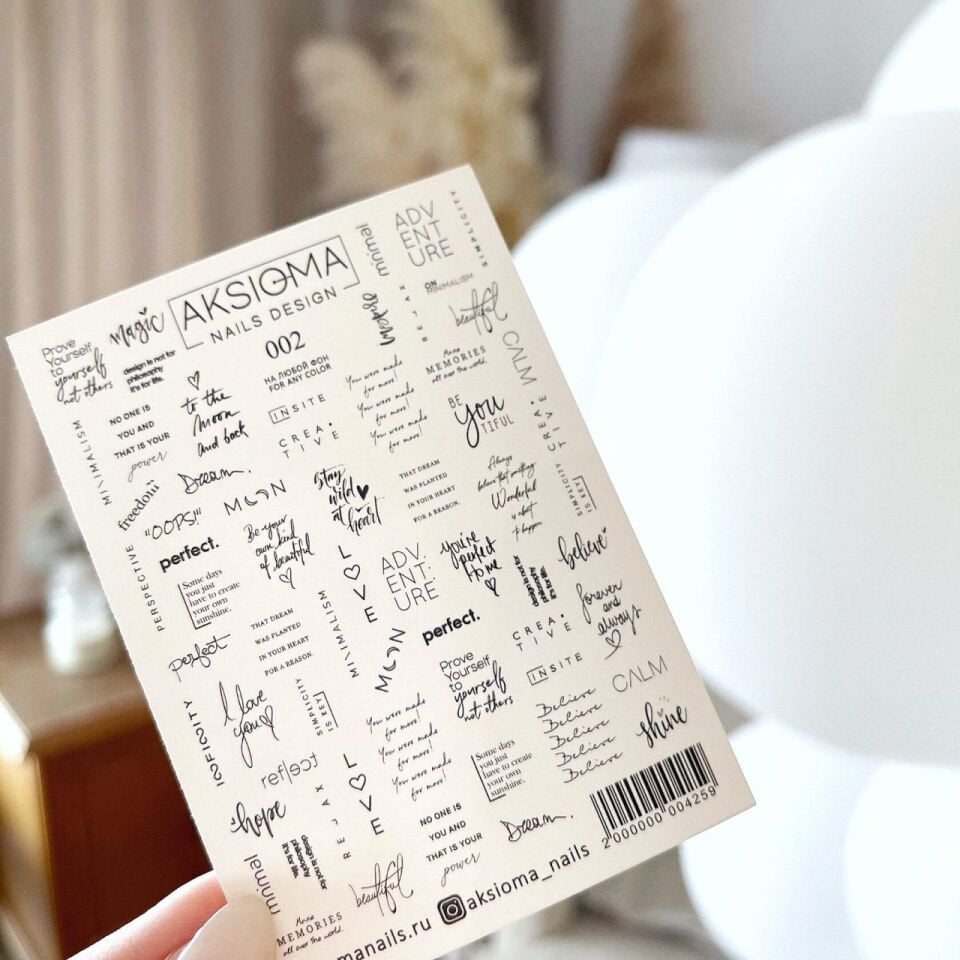 AKSIOMA
NAILS DESIGN
002
НА ЛЮБОЙ ФОН
FOR ANY COLOR
magic
Prove
Yourself
to
yourself
not others
design is not for
philosophy
it's for life.
NO ONE IS
YOU AND
THAT IS YOUR
power
to the
moon
and back
minimal
ADV
ENT
URE
SIMPLICITY
RELAX
ON
MINIMALISM
beautiful
CALM
More
MEMORIES
all over the world.
You were made
for more!
You were made
for more!
You were made
for more!
INSITE
CREA
TIVE
BE
you
TIFUL
CREA
TIVE
MINIMALISM
freedom
Dream.
MOON
stay
wild
at
heart
THAT DREAM
WAS PLANTED
IN YOUR HEART
FOR A REASON.
Always
believe that something
Wonderful
is about
to happen
SIMPLICITY
IS KEY
"OOPS!"
perfect.
Be your
own kind
of beautiful
PERSPECTIVE
Some days
you just
have to create
your own
sunshine.
LOVE
ADV
ENT
URE
you're
perfect
to me
design is not for
philosophy
it's for life.
believe
forever
and
always
perfect
THAT DREAM
WAS PLANTED
IN YOUR HEART
FOR A REASON.
MINIMALISM
MOON
perfect.
CREA
TIVE
INSITE
CALM
Prove
Yourself
to
yourself
not others
I love
you
SIMPLICITY
IS KEY
reflect
You were made
for more!
You were made
for more!
You were made
for more!
Believe
Believe
Believe
Believe
Believe
shine
LOVE
RELAX
Some days
you just
have to create
your own
sunshine.
hope
design is not for
philosophy
it's for life.
minimal
NO ONE IS
YOU AND
THAT IS YOUR
power
Dream.
beautiful
More
MEMORIES
all over the world.
2000000004259
manails.ru
aksioma_nails